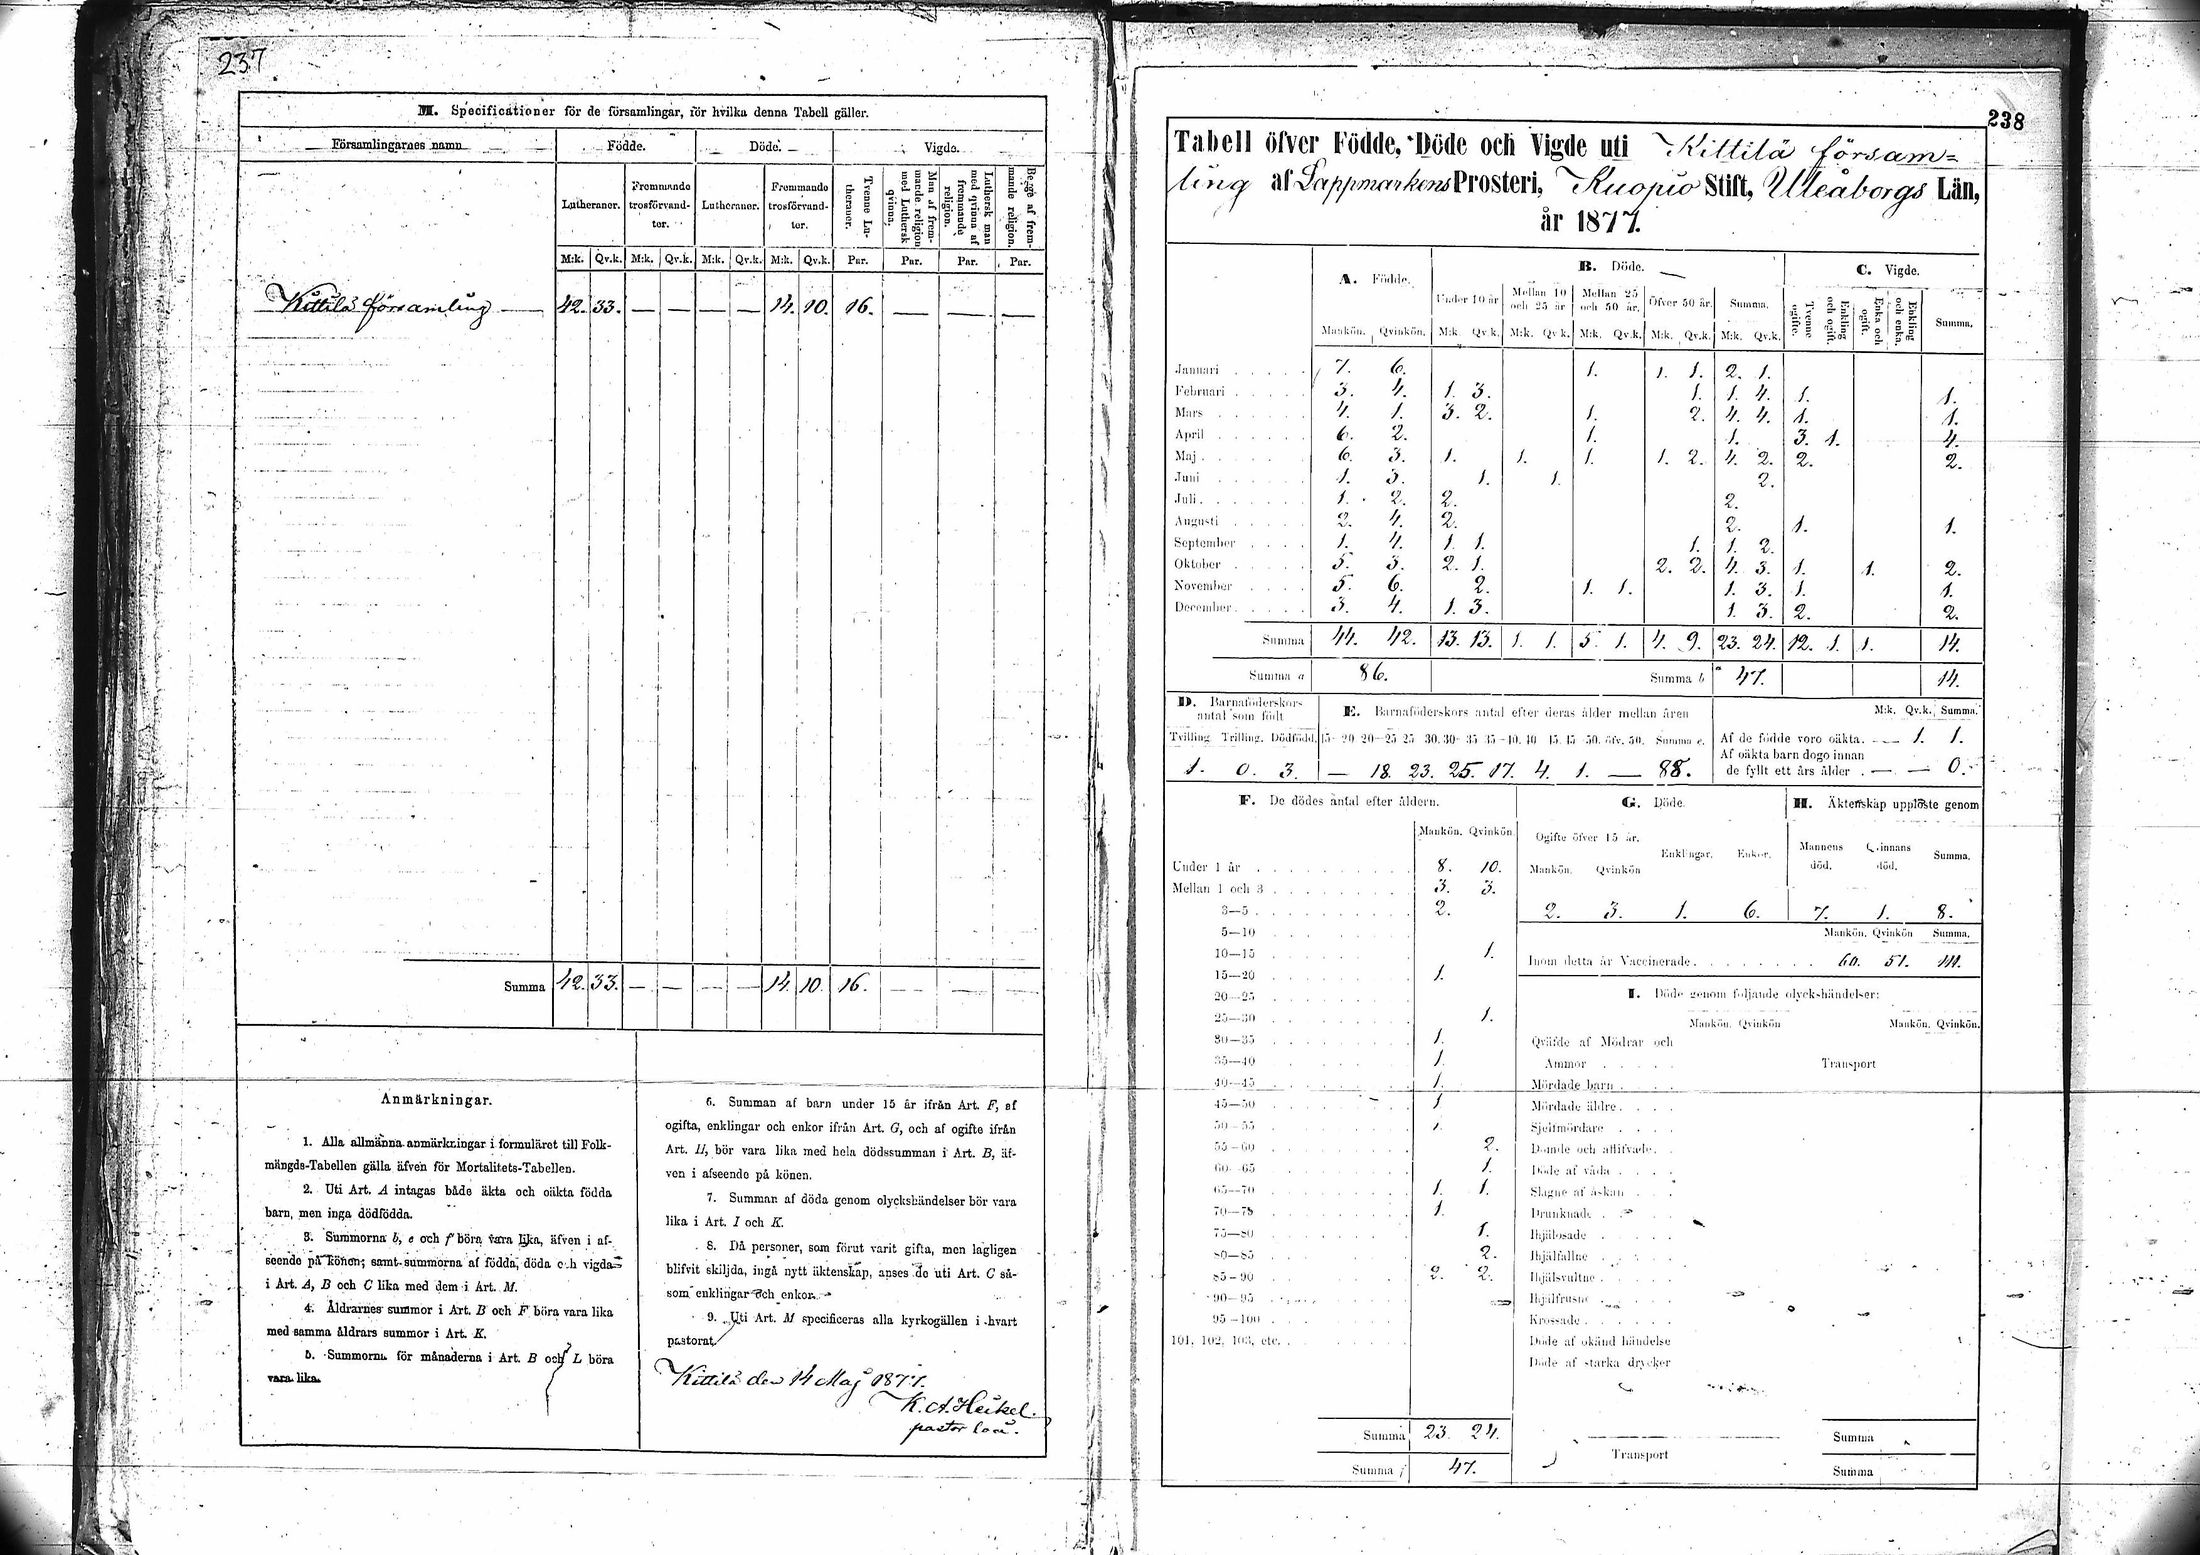 237
M. Specificationer för de församlingar, för hvilka denna Tabell gäller.
Församlingarnes namn. Födde. Döde. Vigde.
Lutheraner. Frommande trosförvandter. Lutheraner. Frommande trosförvandter. Tvenne Lutheraner. Man af fremmande religion med Luthersk qvinna. Luthersk man med qvinna af fremmande religion. Begge af fremmande religion.
M:k. Qv.k. M:k. Qv.k. M:k. Qv.k. M:k. Qv.k. Par. Par. Par. Par.
Kittilä församling 42. 33. — — — — 14. 10. 16. — — —
Summa 42. 33. — — — — 14. 10. 16. — — —
Anmärkningar.
1. Alla allmänna anmärkningar i formuläret till Folk-
mängds-Tabellen gälla äfven för Mortalitets-Tabellen.
2. Uti Art. A intagas både äkta och oäkta födda
barn, men inga dödfödda.
3. Summorna b, e och f böra vara lika, äfven i af-
seende på könen; samt summorna af födda, döda och vigda
i Art. A, B och C lika med dem i Art. M.
4. Åldrarnes summor i Art. B och F böra vara lika
med samma åldrars summor i Art. K.
5. Summorna för månaderna i Art. B och L böra
vara lika.
6. Summan af barn under 15 år ifrån Art. F, af
ogifta, enklingar och enkor ifrån Art. G, och af ogifte ifrån
Art. H, bör vara lika med hela dödssumman i Art. B, äf-
ven i afseende på könen.
7. Summan af döda genom olyckshändelser bör vara
lika i Art. I och K.
8. Då personer, som förut varit gifta, men lagligen
blifvit skiljda, ingå nytt äktenskap, anses de uti Art. C så-
som enklingar och enkor.
9. Uti Art. M specificeras alla kyrkogällen i hvart
pastorat.
Kittilä den 14 Maj 1877.
K. A. Heikel.
pastor loci.
238
Tabell öfver Födde, Döde och Vigde uti Kittilä försam=
ling af Lappmarkens Prosteri, Kuopio Stift, Uleåborgs Län,
år 1877.
A. Födde. B. Döde. C. Vigde.
Under 10 år Mellan 10 och 25 år Mellan 25 och 50 år. Öfver 50 år. Summa. Tvenne ogifte. Enkling och ogift. Enka och ogift. Enkling och enka. Summa.
Mankön. Qvinkön. M:k. Qv.k. M:k. Qv.k. M:k. Qv.k. M:k. Qv.k. M:k. Qv.k.
Januari 7. 6. 1. 1. 1. 2. 1.
Februari 3. 4. 1. 3. 1. 1. 4. 1. 1.
Mars 4. 1. 3. 2. 1. 2. 4. 4. 1. 1.
April 6. 2. 1. 1. 3. 1. 4.
Maj 6. 3. 1. 1. 1. 1. 2. 4. 2. 2. 2.
Juni 1. 3. 1. 1. 2.
Juli 1. 2. 2. 2.
Augusti 2. 4. 2. 2. 1. 1.
September 1. 4. 1. 1. 1. 1. 2.
Oktober 5. 3. 2. 1. 2. 2. 4. 3. 1. 1. 2.
November 5. 6. 2. 1. 1. 1. 3. 1. 1.
December 3. 4. 1. 3. 1. 3. 2. 2.
Summa 44. 42. 13. 13. 1. 1. 5. 1. 4. 9. 23. 24. 12. 1. 1. 14.
Summa a 86. Summa b 47. 14.
D. Barnaföderskors antal som födt
E. Barnaföderskors antal efter deras ålder mellan åren
M:k. Qv.k. Summa.
Tvilling. Trilling. Dödfödd. 15-20 20-25 25 30. 30-35 35-40. 40 45. 45 50. öfv. 50. Summa e.
1. 0. 3. — 18. 23. 25. 17. 4. 1. — 88.
Af de födde voro oäkta. — 1. 1.
Af oäkta barn dogo innan
de fyllt ett års ålder . — — 0.
F. De dödes antal efter åldern.
Mankön. Qvinkön.
Under 1 år 8. 10.
Mellan 1 och 3 3. 3.
3—5 2.
5—10
10—15 1.
15—20 1.
20—25
25—30 1.
30—35 1.
35—40 1.
40—45 1.
45—50 1.
50—55 1.
55—60 2.
60—65 1.
65—70 1. 1.
70—75 1.
75—80 1.
80—85 2.
85—90 2. 2.
90—95
95—100
101, 102, 103, etc.
Summa 23. 24.
Summa f 47.
G. Döde.
Ogifte öfver 15 år. Enklingar. Enkor.
Mankön. Qvinkön
2. 3. 1. 6.
H. Äktenskap upplöste genom
Mannens död. Qvinnans död. Summa.
7. 1. 8.
Mankön. Qvinkön Summa.
Inom detta år Vaccinerade 60. 51. 111.
I. Döde genom följande olyckshändelser:
Mankön. Qvinkön Mankön. Qvinkön.
Qväfde af Mödrar och
Ammor Transport
Mördade barn
Mördade äldre
Sjelfmördare
Dömde och aflifvade
Döde af våda
Slagne af åskan
Drunknade
Ihjälosade
Ihjälfallne
Ihjälsvultne
Ihjälfrusne
Krossade
Döde af okänd händelse
Döde af starka drycker
Summa
Transport
Summa